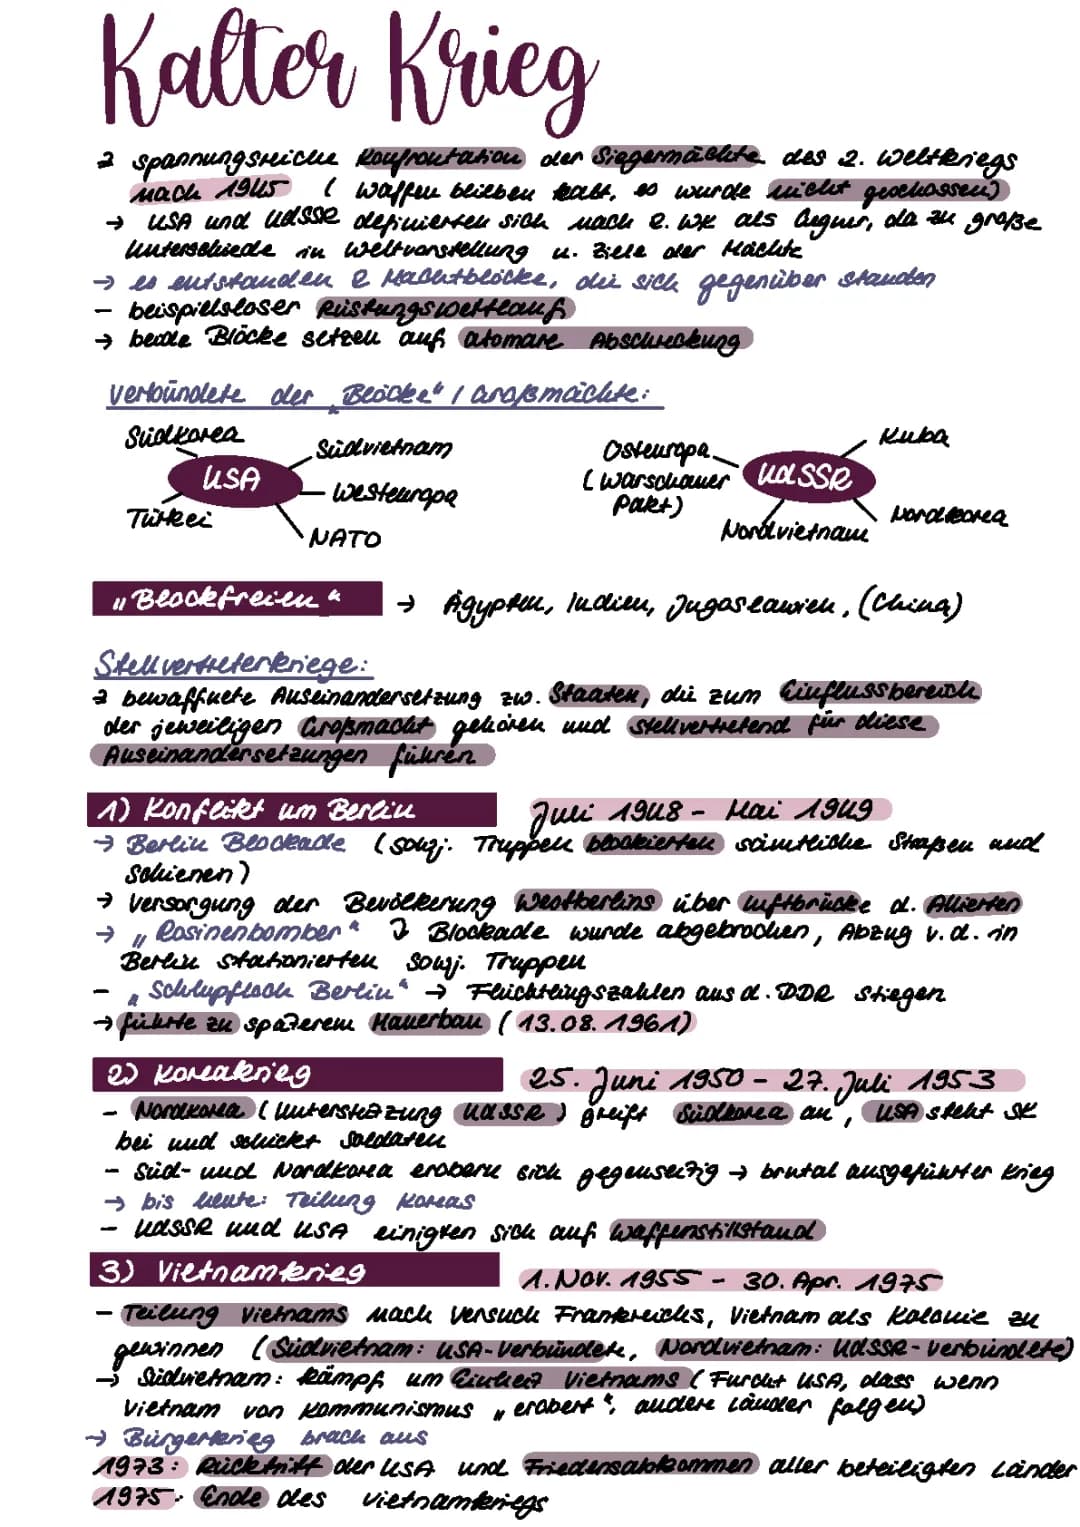 Kalter Krieg
→ spannungsreiche Konfrontation der Siegermächte des 2. Weltkriegs
nach 1945 ( Waffen blieben kalt, es wurde nicht geschossen)
→ USA und UdSSR definierten sich nach 2. WK als Gegner, da zu große
Unterschiede in Weltvorstellung u. Ziele der Mächte
→ es entstanden 2 Machtblöcke, die sich gegenüber standen
- beispielsloser Rüstungswettlauf
→ beide Blöcke setzen auf atomare Abschreckung
Verbündete der „Blöcke" / Großmächte:
Südkorea
Südvietnam
USA
Westeuropa
Türkei
NATO
Kuba
Osteuropa
(Warschauer
Pakt)
UdSSR
Nordkorea
Nordvietnam
„Blockfreien" → Ägypten, Indien, Jugoslawien, (China)
Stellvertreterkriege:
→ bewaffnete Auseinandersetzung zw. Staaten, die zum Einflussbereich
der jeweiligen Großmacht gehören und stellvertretend für diese
Auseinandersetzungen führen
1) Konflikt um Berlin Juli 1948 - Mai 1949
→ Berlin Blockade (sowj. Truppen blockierten sämtliche Straßen und
Schienen)
→ Versorgung der Bevölkerung Westberlins über Luftbrücke d. Allierten
→ „Rosinenbomber" ↴ Blockade wurde abgebrochen, Abzug v. d. in
Berlin stationierten Sowj. Truppen
- „Schlupfloch Berlin" → Flüchtlingszahlen aus d. DDR stiegen
→ führte zu späterem Mauerbau (13.08.1961)
2) Koreakrieg 25. Juni 1950 - 27. Juli 1953
- Nordkorea (Unterstützung UdSSR) greift Südkorea an, USA steht SK
bei und schickt Soldaten
- Süd- und Nordkorea erobern sich gegenseitig → brutal ausgeführter Krieg
→ bis heute: Teilung Koreas
- UdSSR und USA einigten sich auf Waffenstillstand
3) Vietnamkrieg 1. Nov. 1955 - 30. Apr. 1975
- Teilung Vietnams nach Versuch Frankreichs, Vietnam als Kolonie zu
gewinnen (Südvietnam: USA-Verbündete, Nordvietnam: UdSSR-Verbündete)
→ Südvietnam: Kampf um Einheit Vietnams (Furcht USA, dass wenn
Vietnam von Kommunismus „erobert", andere Länder folgen)
→ Bürgerkrieg brach aus
1973: Rücktritt der USA und Friedensabkommen aller beteiligten Länder
1975: Ende des Vietnamkriegs